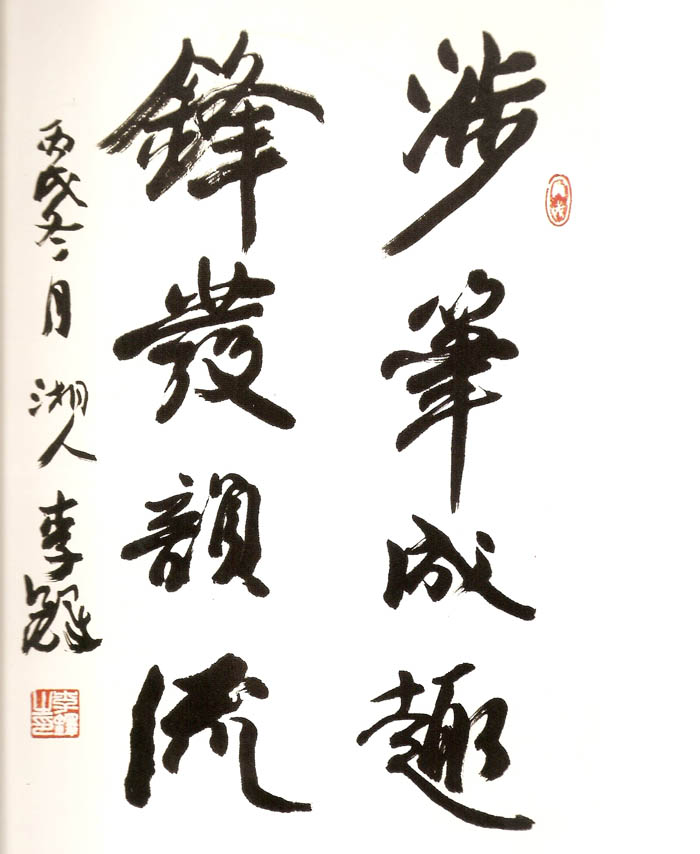 涉筆成趣
鋒發韻流
丙戌冬月 湘人 李鐸
李鐸之印